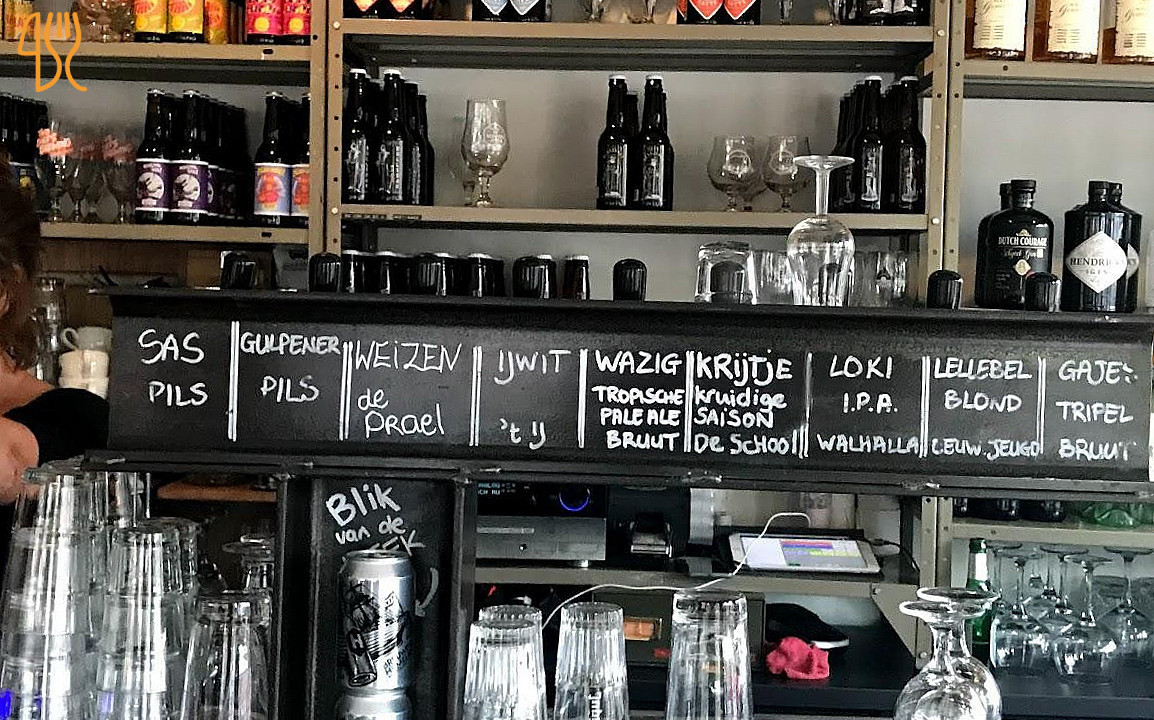 DUTCH COURAGE
HENDRICK'S
GIN
SAS
PILS
GULPENER
PILS
WEIZEN
de
Prael
IJWIT
't IJ
WAZIG
TROPISCHE
PALE ALE
BRUUT
KRIJTJE
kruidige
SAISON
De SCHOOL
LOKI
I.P.A.
WALHALLA
LELLEBEL
BLOND
LEUW. JEUGD
GAJES
TRIPEL
BRUUT
Blik
van de